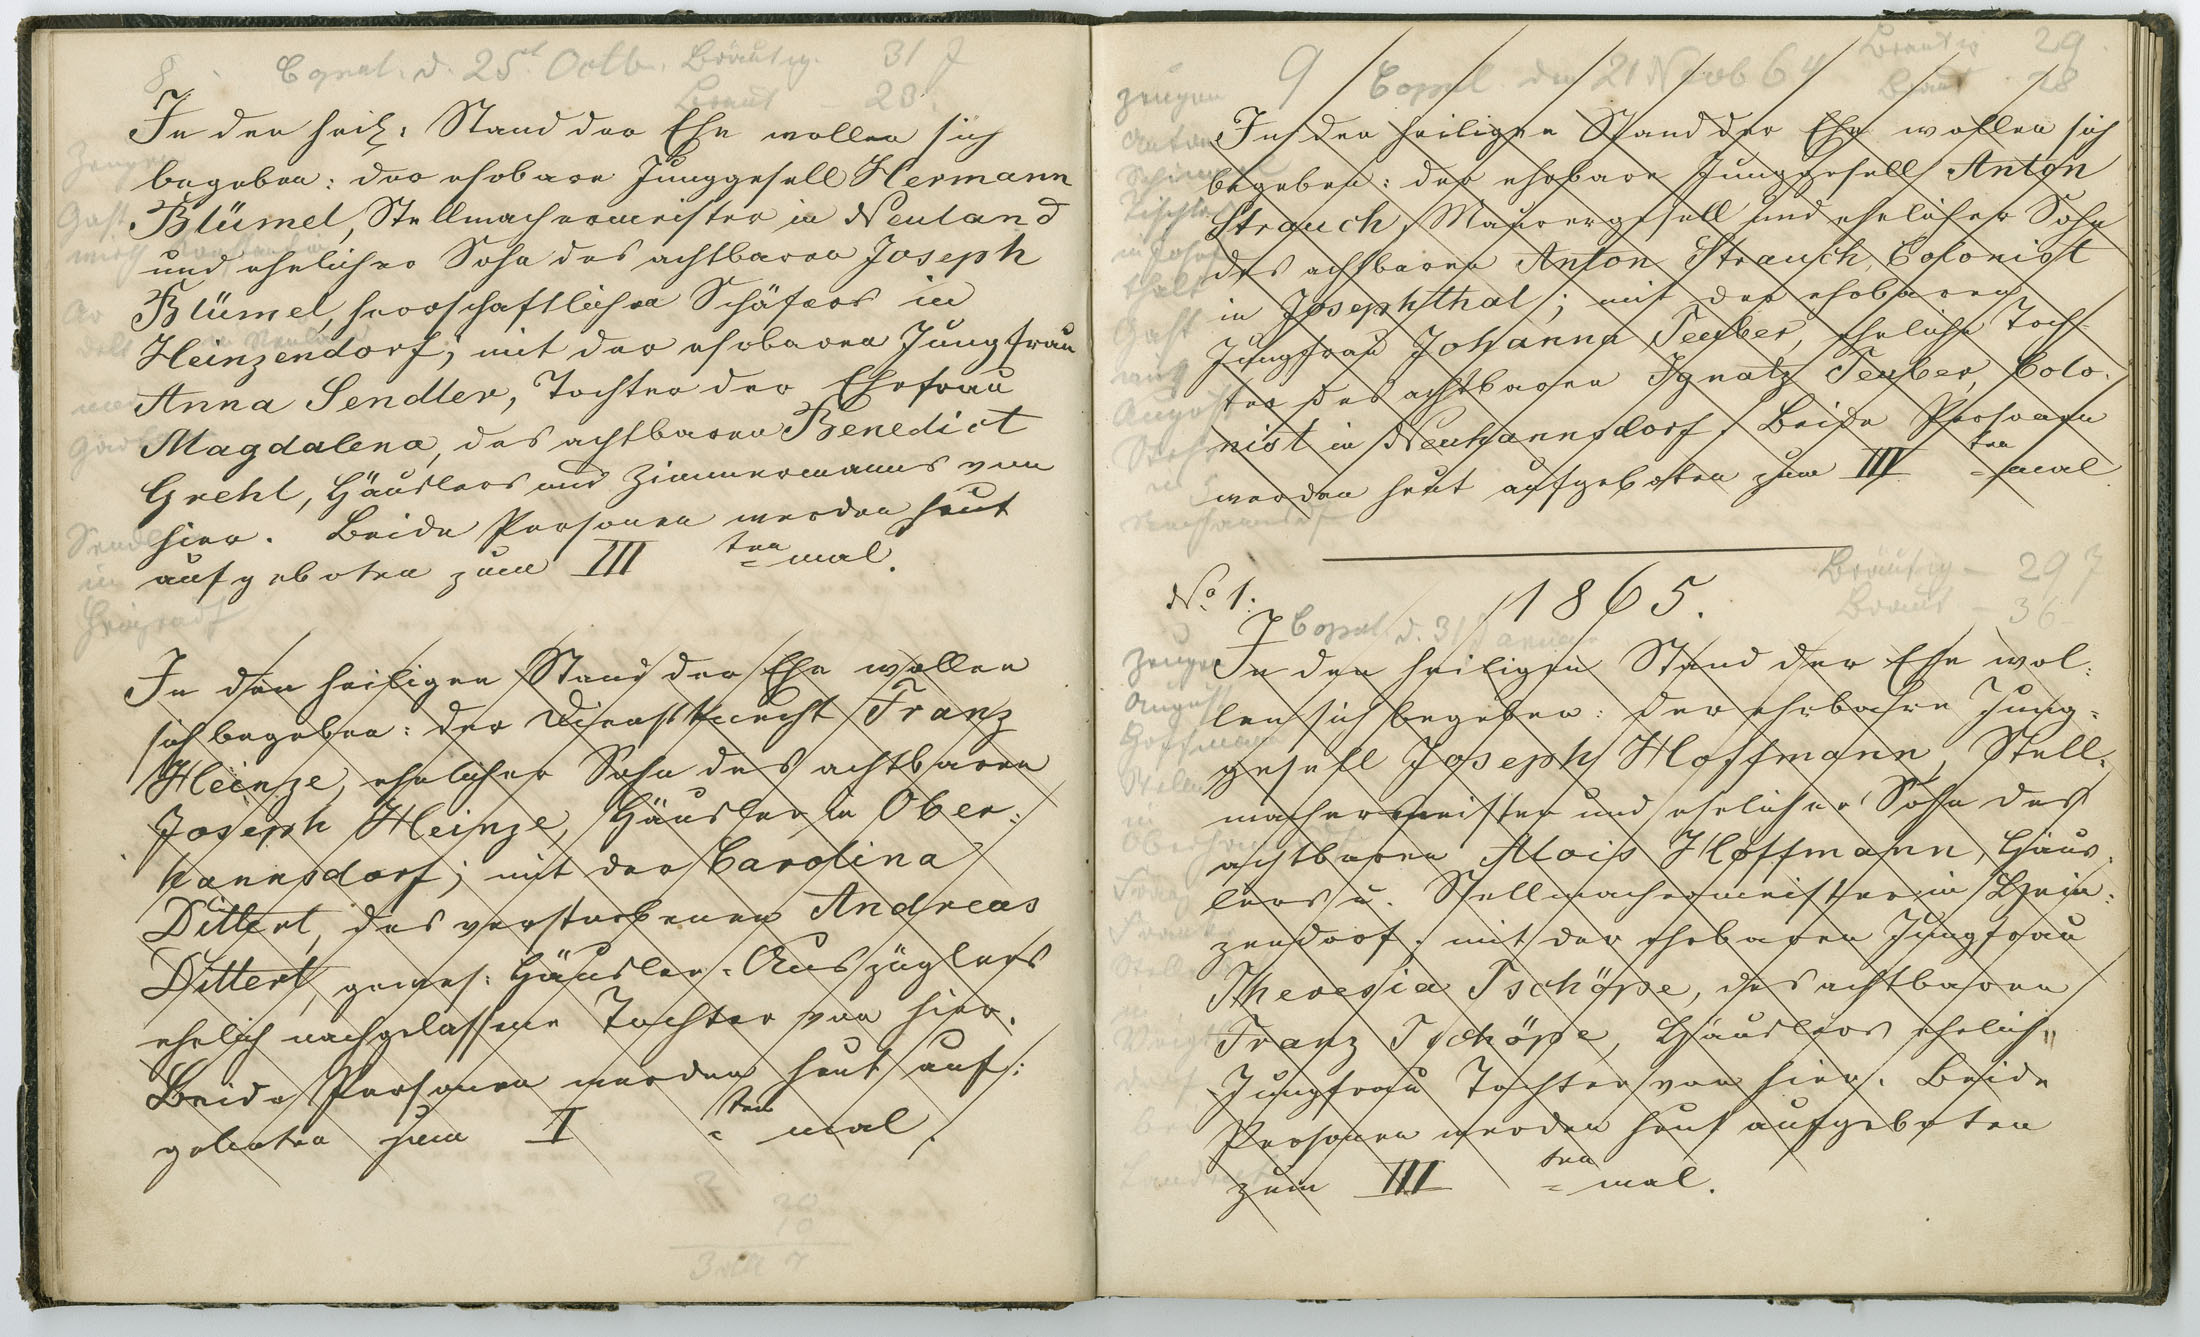 8. Copul. d. 25t. Octb. Bräutig. 31 J
Braut – 23.
In den heil: Stand der Ehe wollen sich
begeben: der ehrbare Junggesell Hermann
Blümel, Stellmachermeister in Neuland
und ehelicher Sohn des achtbaren Joseph
Blümel, herrschaftlichen Schäfers in
Heinzendorf; mit der ehrbaren Jungfrau
Anna Sendler, Tochter der Ehefrau
Magdalena, des achtbaren Benedict
Grehl, Häuslers und Zimmermanns von
hier. Beide Personen werden heut
aufgeboten zum III ten = mal.
In den heiligen Stand der Ehe wollen
sich begeben: der Dienstknecht Franz
Heinze, ehelicher Sohn des achtbaren
Joseph Heinze, Häusler in Ober:
hannsdorf; mit der Carolina
Dittert, des verstorbenen Andreas
Dittert, gewes: Häusler-Auszüglers
ehelich nachgelassene Tochter von hier.
Beide Personen werden heut auf:
geboten zum I ten = mal.
9 Copul. den 21 Novb 64 Bräutig 29.
Braut 28
Zeugen
In den heiligen Stand der Ehe wollen sich
begeben: der ehrbare Junggesell Anton
Strauch, Maurergesell und ehelicher Sohn
des achtbaren Anton Strauch, Colonist
in Josephthal; mit der ehrbaren
Jungfrau Johanna Teuber, eheliche Toch-
ter des achtbaren Ignatz Teuber, Colo-
nist in Neuhannsdorf. Beide Personen
werden heut aufgeboten zum III ten = mal
Bräutig – 29 J
No 1. 1865.
Braut – 36
Copul. d. 31 Januar
Zeugen
In den heiligen Stand der Ehe wol:
len sich begeben: der ehrbahre Jung-
gesell Joseph Hoffmann, Stell-
machermeister und ehelicher Sohn des
achtbaren Alois Hoffmann, Häus-
lers u. Stellmachermeister in Hein:
zendorf; mit der ehrbaren Jungfrau
Theresia Tschöpe, des achtbaren
Franz Tschöpe, Häuslers ehelich"
Jungfrau Tochter von hier. Beide
Personen werden heut aufgeboten
zum III ten = mal.